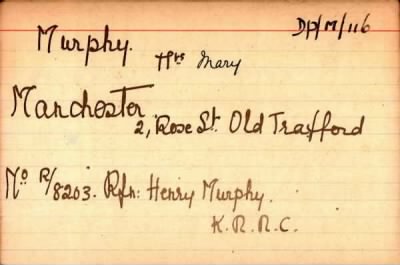 DP/M/116
Murphy. Mrs Mary
Manchester.
2, Rose St. Old Trafford
No R/8203. Rfn: Henry Murphy.
K.R.R.C.